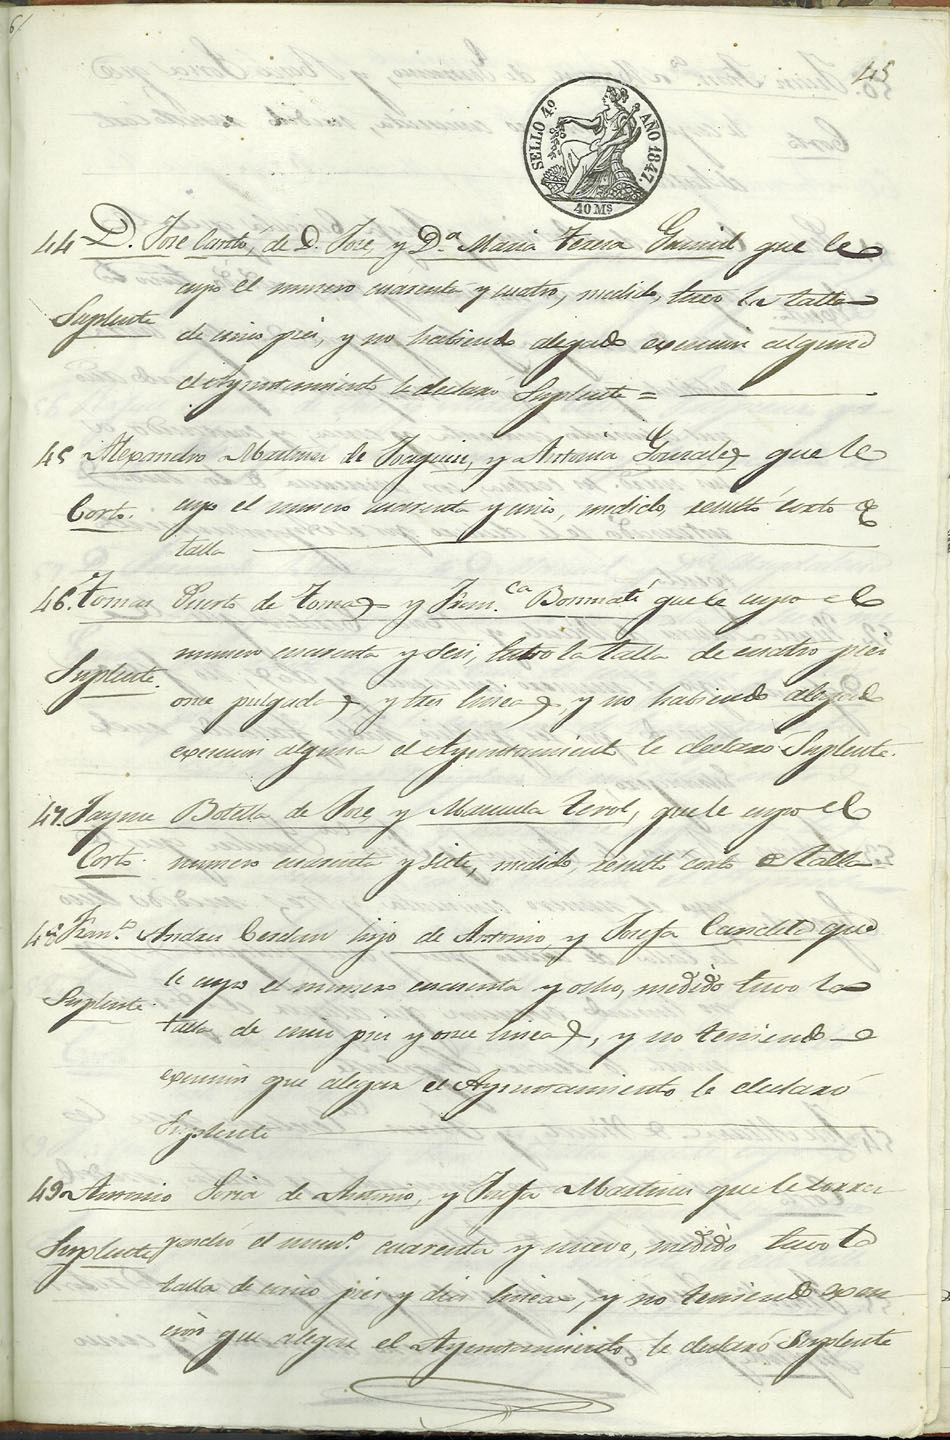 45
SELLO 4º AÑO 1847.
40 Ms
44 D. José Cantó, de D. José, y Dª María Teresa que le
cupo el numero cuarenta y cuatro, medido, tuvo la talla
Suplente
de cinco pies, y no habiendo alegado exencion alguna
el Ayuntamiento le declaró Suplente =
45 Alexandro Martinez de Joaquin, y Antonia Gonzalez que le
Corto. cupo el numero cuarenta y cinco, medido, resultó corto de
talla
46. Tomas Puerto de Tomas y Fran.ca Bonmatí que le cupo el
numero cuarenta y seis, tubo la talla de cuatro pies
Suplente.
once pulgadas y tres lineas, y no habiendo alegado
exencion alguna el Ayuntamiento le declaró Suplente.
47. Jayme Botella de José y Manuela Verol, que le cupo el
Corto. numero cuarenta y siete, medido, resultó corto de talla
48 Fran.º Andreu Cerdan hijo de Antonio, y Josefa Candela que
le cupo el numero cuarenta y ocho, medido tuvo la
Suplente.
talla de cinco pies y once lineas, y no teniendo
exencion que alegar el Ayuntamiento le declaró
Suplente
49 Antonio Soria de Antonio, y Josefa Martinez que le corres
Suplente pondió el num.º cuarenta y nueve, medido tuvo la
talla de cinco pies y diez lineas, y no teniendo exen
cion que alegar el Ayuntamiento le declaró Suplente